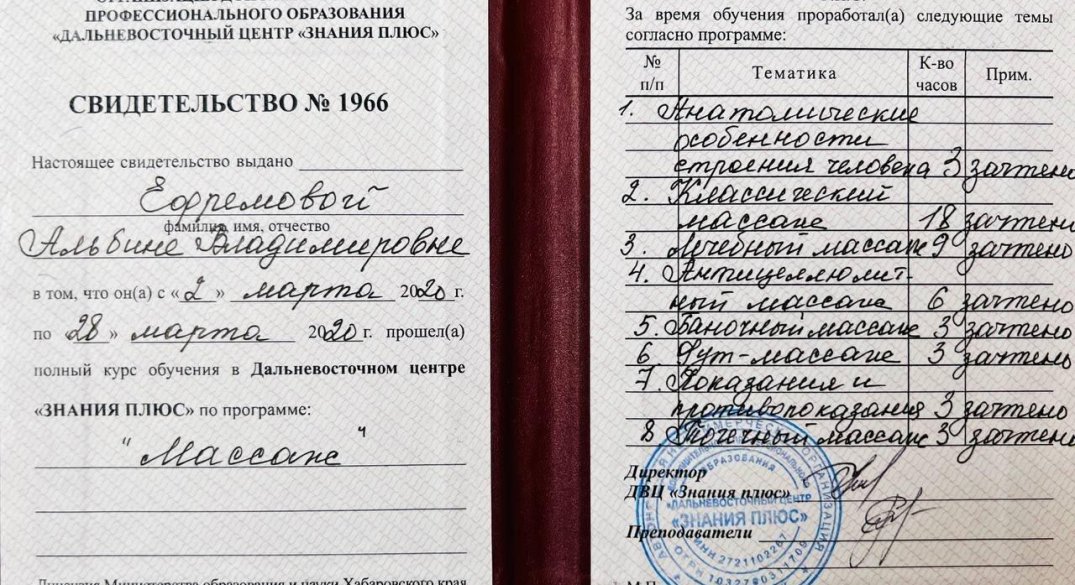 ПРОФЕССИОНАЛЬНОГО ОБРАЗОВАНИЯ
«ДАЛЬНЕВОСТОЧНЫЙ ЦЕНТР «ЗНАНИЯ ПЛЮС»
СВИДЕТЕЛЬСТВО № 1966
Настоящее свидетельство выдано
Ефремовой
фамилия, имя, отчество
Альбине Владимировне
в том, что он(а) с «2» марта 2020 г.
по «28» марта 2020 г. прошел(а)
полный курс обучения в Дальневосточном центре
«ЗНАНИЯ ПЛЮС» по программе:
"Массаж"
Лицензия Министерства образования и науки Хабаровского края
За время обучения проработал(а) следующие темы
согласно программе:
№ п/п Тематика К-во часов Прим.
1. Анатомические
особенности
строения человека 3 зачтено
2. Классический
массаж 18 зачтено
3. Лечебный массаж 9 зачтено
4. Антицеллюлит-
ный массаж 6 зачтено
5. Баночный массаж 3 зачтено
6 Фут-массаж 3 зачтено
7. Показания и
противопоказания 3 зачтено
8 Точечный массаж 3 зачтено
Директор
ДВЦ «Знания плюс»
Преподаватели
ОБРАЗОВАНИЯ
«ДАЛЬНЕВОСТОЧНЫЙ ЦЕНТР
«ЗНАНИЯ ПЛЮС»
ИНН 2721102267
ОГРН 1032780311709
М.П.